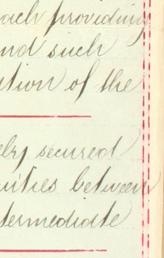 each providing
and such
ition of the
ely secured
urities between
termediate